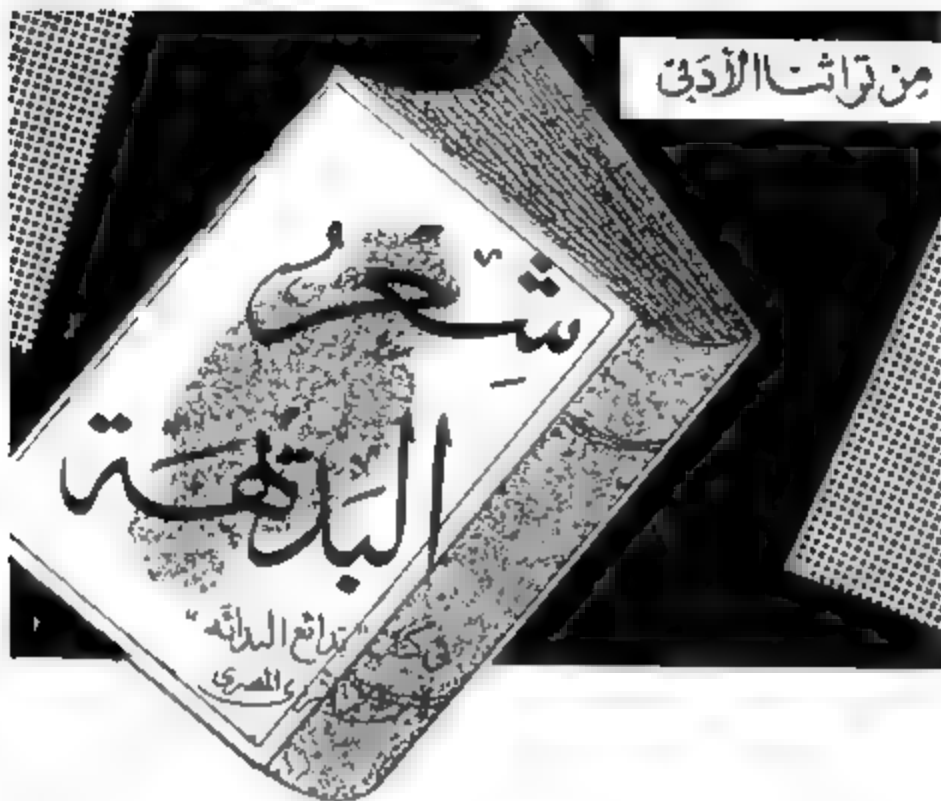 مِن تراثنا الأدَبى
شِعرُ
البَدِيهَة
"بدائع البدائه"
المصرى